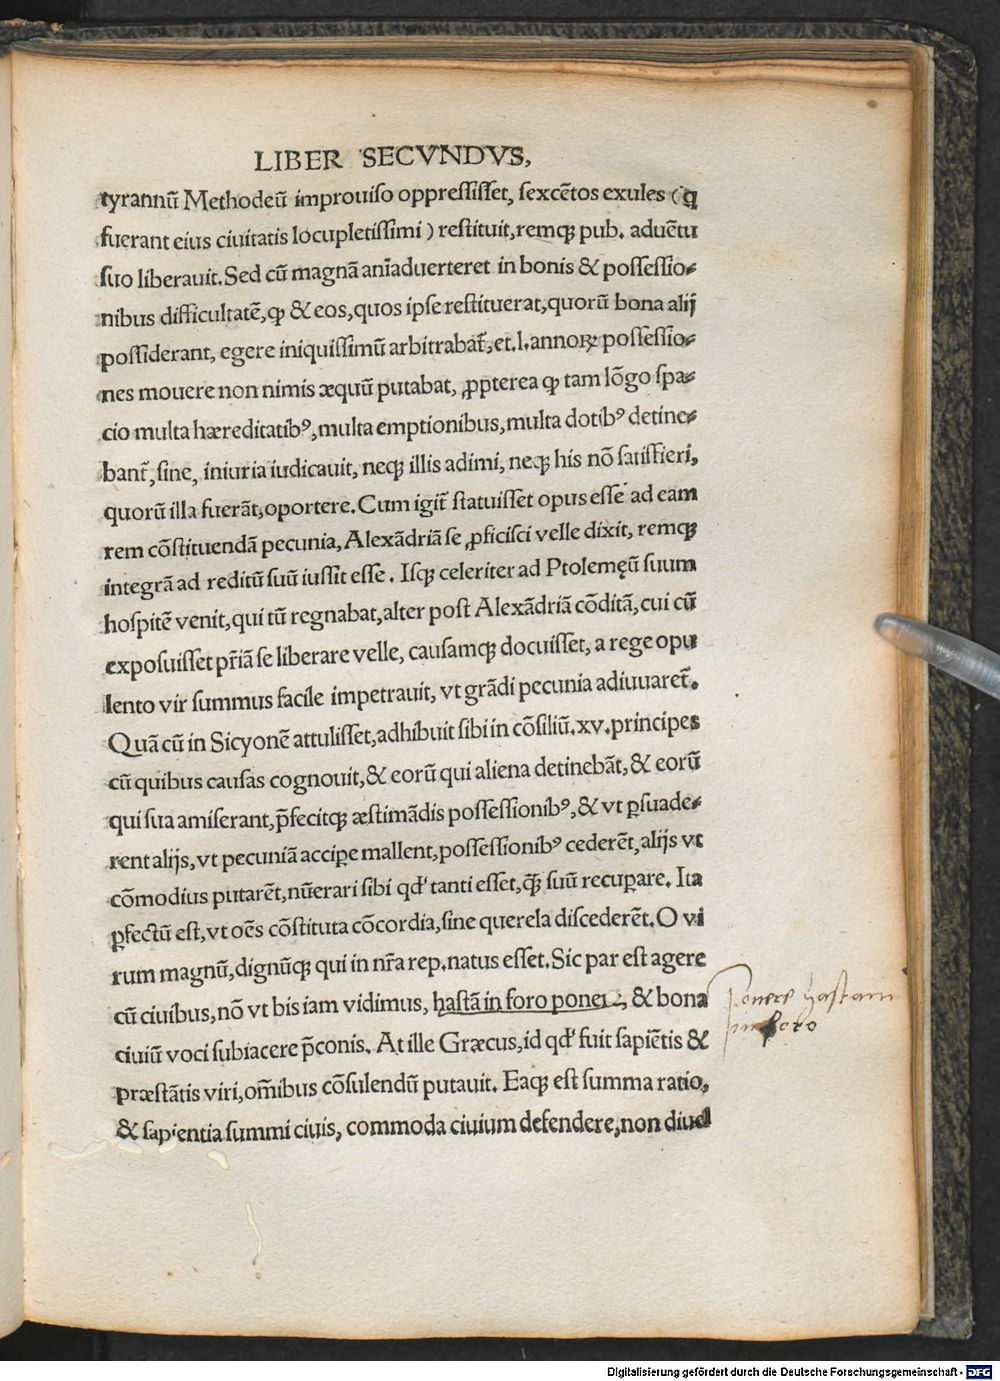 LIBER SECVNDVS,
tyrannū Methodeū improuiso oppressisset, sexcētos exules (q
fuerant eius ciuitatis locupletissimi) restituit, remqꝫ pub. aduētu
suo liberauit. Sed cū magnā aniaduerteret in bonis & possessio-
nibus difficultatē, ꝙ & eos, quos ipse restituerat, quorū bona alij
possiderant, egere iniquissimū arbitrabat̃, et .l. annoꝝ possessio-
nes mouere non nimis æquū putabat, ꝓpterea ꝙ tam lōgo spa-
cio multa hæreditatibꝰ, multa emptionibus, multa dotibꝰ detine-
bant̃, sine, iniuria iudicauit, neqꝫ illis adimi, neqꝫ his nō satisfieri,
quorū illa fuerāt, oportere. Cum igit̃ statuisset opus esse ad eam
rem cōstituendā pecunia, Alexādriā se ꝓficisci velle dixit, remqꝫ
integrā ad reditū suū iussit esse. Isqꝫ celeriter ad Ptolemęū suum
hospitē venit, qui tū regnabat, alter post Alexādriā cōditā, cui cū
exposuisset pr̃iā se liberare velle, causamqꝫ docuisset, a rege opu
lento vir summus facile impetrauit, vt grādi pecunia adiuuaret̃.
Quā cū in Sicyonē attulisset, adhibuit sibi in cōsiliū .xv. principes
cū quibus causas cognouit, & eorū qui aliena detinebāt, & eorū
qui sua amiserant, p̄fecitqꝫ æstimādis possessionibꝰ, & vt ꝑsuade-
rent alijs, vt pecuniā acciꝑe mallent, possessionibꝰ cederēt, alijs vt
cōmodius putarēt, nūerari sibi qd' tanti esset, q̄ꝫ suū recuꝑare. Ita
ꝑfectū est, vt oēs cōstituta cōcordia, sine querela discederēt. O vi
rum magnū, dignūqꝫ qui in nr̃a rep. natus esset. Sic par est agere
cū ciuibus, nō vt bis iam vidimus, hastā in foro poner, & bona
ciuiū voci subiacere p̄conis. At ille Græcus, id qd' fuit sapiētis &
præstātis viri, om̄ibus cōsulendū putauit. Eaqꝫ est summa ratio,
& sapientia summi ciuis, commoda ciuium defendere, non diuel
ponere hastam
in foro
Digitalisierung gefördert durch die Deutsche Forschungsgemeinschaft - DFG